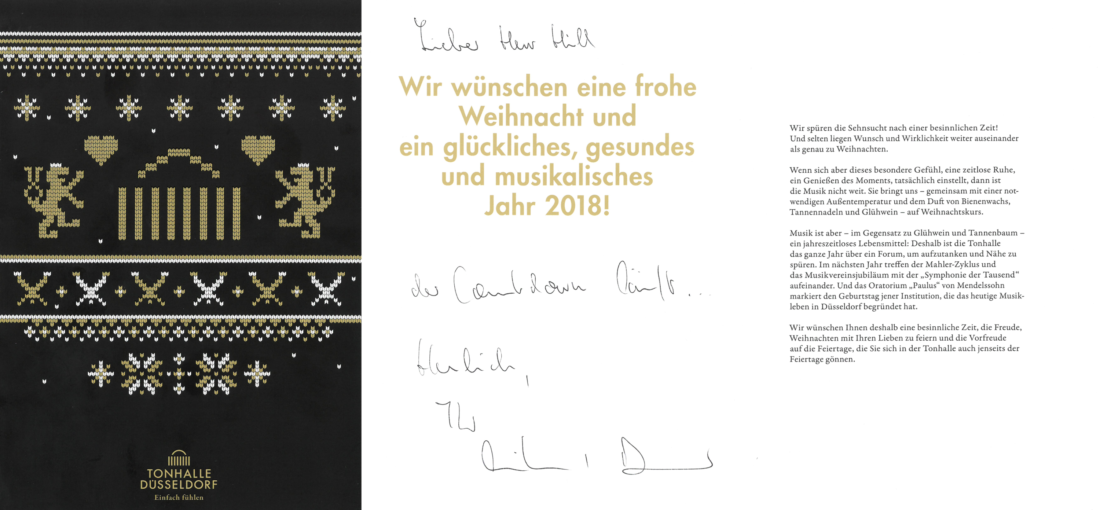 TONHALLE
DÜSSELDORF
Einfach fühlen
Lieber Herr Hill
Wir wünschen eine frohe
Weihnacht und
ein glückliches, gesundes
und musikalisches
Jahr 2018!
der Countdown läuft...
Herzlich,
Ihr
Wir spüren die Sehnsucht nach einer besinnlichen Zeit!
Und selten liegen Wunsch und Wirklichkeit weiter auseinander
als genau zu Weihnachten.
Wenn sich aber dieses besondere Gefühl, eine zeitlose Ruhe,
ein Genießen des Moments, tatsächlich einstellt, dann ist
die Musik nicht weit. Sie bringt uns – gemeinsam mit einer not-
wendigen Außentemperatur und dem Duft von Bienenwachs,
Tannennadeln und Glühwein – auf Weihnachtskurs.
Musik ist aber – im Gegensatz zu Glühwein und Tannenbaum –
ein jahreszeitloses Lebensmittel: Deshalb ist die Tonhalle
das ganze Jahr über ein Forum, um aufzutanken und Nähe zu
spüren. Im nächsten Jahr treffen der Mahler-Zyklus und
das Musikvereinsjubiläum mit der „Symphonie der Tausend“
aufeinander. Und das Oratorium „Paulus“ von Mendelssohn
markiert den Geburtstag jener Institution, die das heutige Musik-
leben in Düsseldorf begründet hat.
Wir wünschen Ihnen deshalb eine besinnliche Zeit, die Freude,
Weihnachten mit Ihren Lieben zu feiern und die Vorfreude
auf die Feiertage, die Sie sich in der Tonhalle auch jenseits der
Feiertage gönnen.